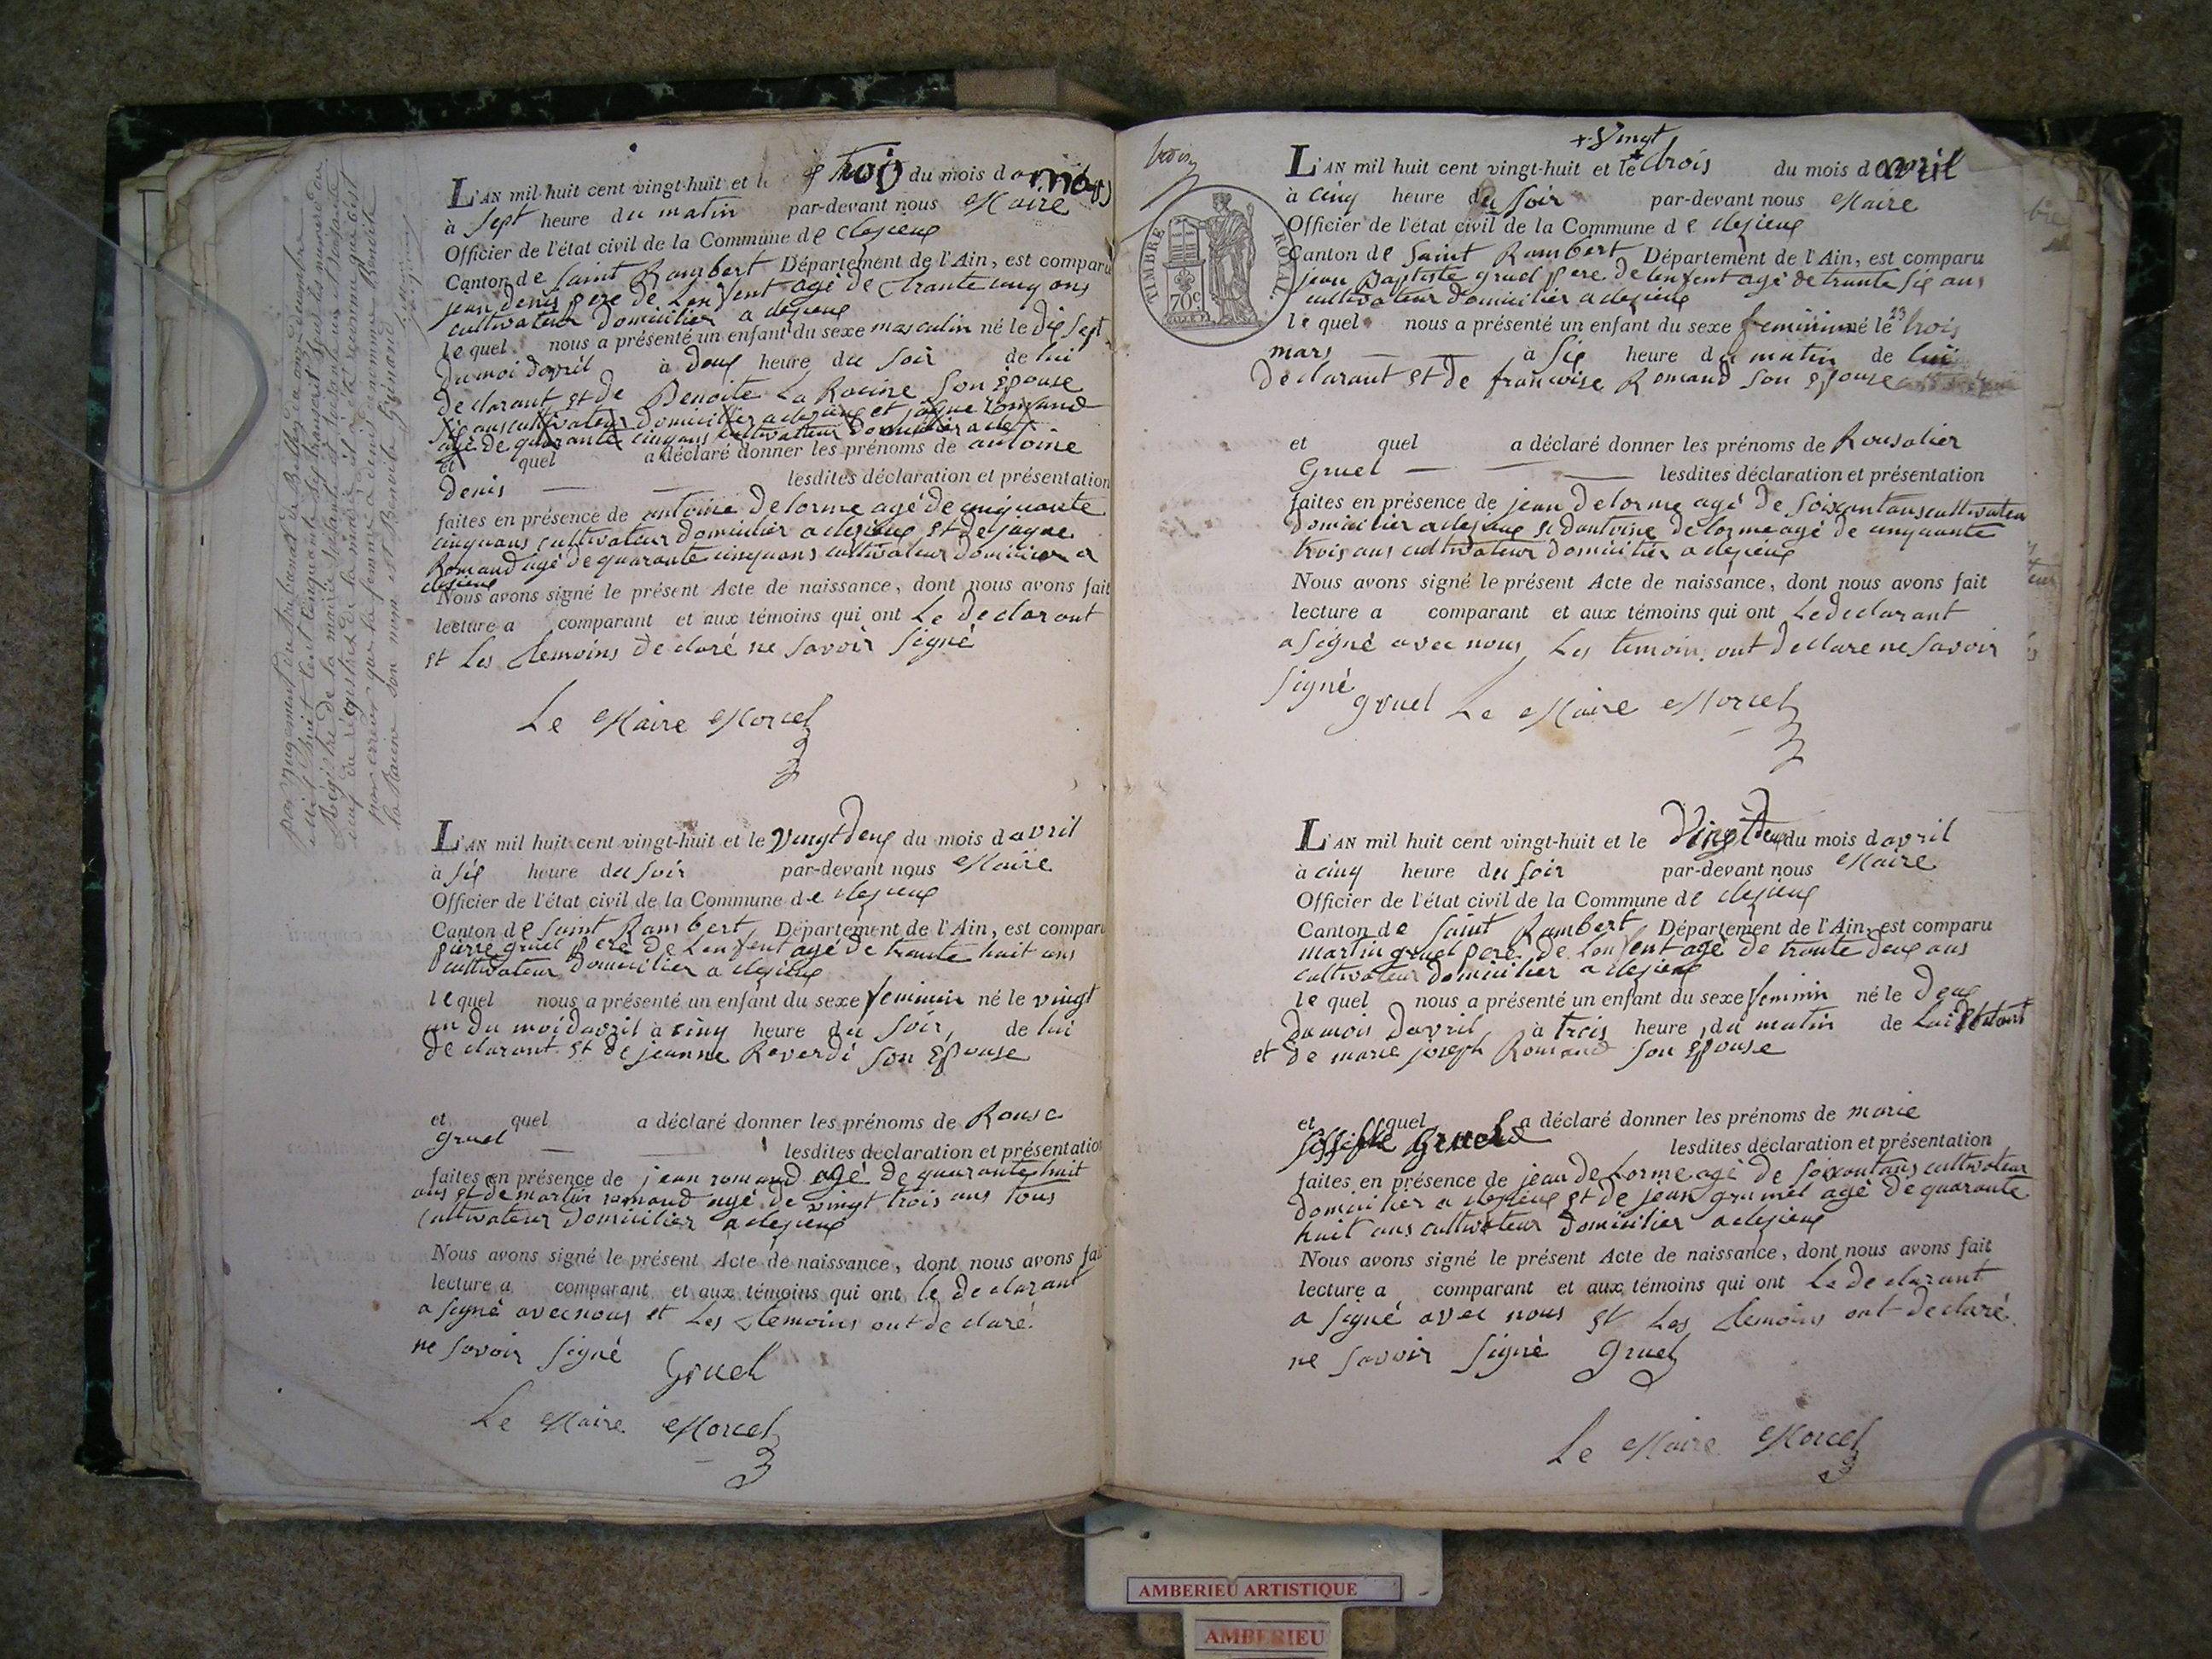 L'AN mil huit cent vingt-huit et le trois du mois d mars
à sept heure du matin par-devant nous Maire
Officier de l'état civil de la Commune de clezieux
Canton de Saint Rambert Département de l'Ain, est comparu
jean denis pere de Lenfent agé de trante cinq ans
cultivateur domicilier a clezieux
lequel nous a présenté un enfant du sexe masculin né le dix sept
du moi davril à deux heure du soir de lui
declarant et de Benoite La Racine son epouse
six ans cultivateur domicillier a clezieux et jaque romand
agé de quarante cinq ans cultivateur domicilier a cle
et quel a déclaré donner les prénoms de antoine
denis lesdites déclaration et présentation
faites en présence de antoine delorme agé de cinquante
cinquans cultivateur domicilier a clezieux et de jaque
Romand agé de quarante cinquans cultivateur domicier a
clezieux
Nous avons signé le présent Acte de naissance, dont nous avons fait
lecture a comparant et aux témoins qui ont Le declarant
et Les temoins declaré ne savoir signé
Le Maire Morcel
par jugement du tribunal de Belley
la Racine son nom est Benoite Guinand
L'AN mil huit cent vingt-huit et le vingt deux du mois d avril
à six heure du soir par-devant nous Maire
Officier de l'état civil de la Commune de clezieux
Canton de Saint Rambert Département de l'Ain, est comparu
pierre gruel pere de Lenfent agé de trante huit ans
cultivateur domicilier a clezieux
lequel nous a présenté un enfant du sexe feminin né le vingt
un du moi davril à cinq heure du soir, de lui
declarant et de jeanne Reverdi son epouse
et quel a déclaré donner les prénoms de Rouse
gruel lesdites déclaration et présentation
faites en présence de jean romand agé de quarante huit
ans et de martin romand agé de vingt trois ans tous
cultivateur domicilier a clezieux
Nous avons signé le présent Acte de naissance, dont nous avons fait
lecture a comparant et aux témoins qui ont le declarant
a signé avec nous et Les temoins ont declaré
ne savoir signé
Gruel
Le Maire Morcel
trois
TIMBRE ROYAL
70c
+ Vingt
L'AN mil huit cent vingt-huit et le + trois du mois d avril
à cinq heure du soir par-devant nous Maire
Officier de l'état civil de la Commune de clezieux
Canton de Saint Rambert Département de l'Ain, est comparu
jean Baptiste gruel pere de lenfent agé de trante six ans
cultivateur domicilier a clezieux
lequel nous a présenté un enfant du sexe feminin né le 23 trois
mars à six heure du matin de lui
declarant et de francoise Romand son epouse
et quel a déclaré donner les prénoms de Rousalier
Gruel lesdites déclaration et présentation
faites en présence de jean delorme agé de soixantans cultivateur
domicilier a clezieux et dantoine delorme agé de cinquante
trois ans cultivateur domicilier a clezieux
Nous avons signé le présent Acte de naissance, dont nous avons fait
lecture a comparant et aux témoins qui ont Le declarant
a signé avec nous Les temoin ont declare ne savoir
signé
gruel Le Maire Morcel
L'AN mil huit cent vingt-huit et le Vingt deux du mois d avril
à cinq heure du soir par-devant nous Maire
Officier de l'état civil de la Commune de clezieux
Canton de Saint Rambert Département de l'Ain, est comparu
martin gruel pere de Lenfent agé de trante deux ans
cultivateur domicilier a clezieux
lequel nous a présenté un enfant du sexe feminin né le deux
du mois davril à trois heure du matin de Lui
et de marie joseph Romand son epouse
et quel a déclaré donner les prénoms de marie
Gruel lesdites déclaration et présentation
faites en présence de jean delorme agé de soixantans cultivateur
domicilier a clezieux et de jean grumet agé de quarante
huit ans cultivateur domicilier a clezieux
Nous avons signé le présent Acte de naissance, dont nous avons fait
lecture a comparant et aux témoins qui ont Le declarant
a signé avec nous et Les temoins ont declaré
ne savoir signé gruel
Le Maire Morcel
AMBERIEU ARTISTIQUE
AMBERIEU